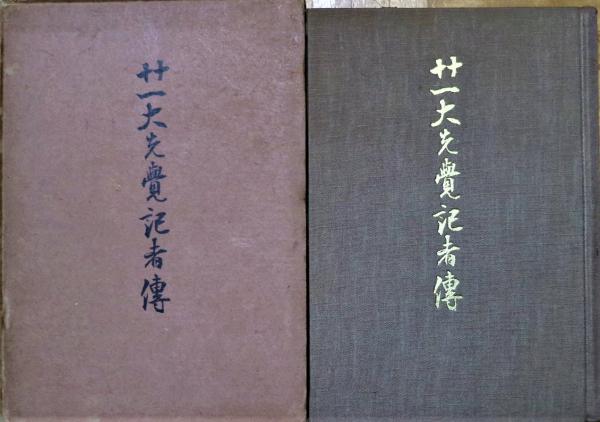 廿一大先覺記者傳
廿一大先覺記者傳